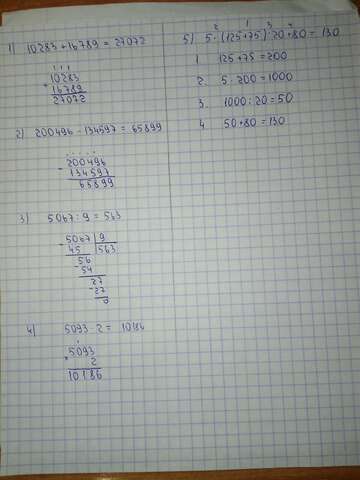 1) 10283 + 16789 = 27072
1 1 1
10283
+
16789
27072
2) 200496 - 134597 = 65899
. . . . .
200496
-
134597
65899
3) 5067 : 9 = 563
- 5067 | 9
45 | 563
56
- 54
27
- 27
0
4) 5093 · 2 = 10186
5093
×
2
10186
2 1 3 4
5) 5 · (125 + 75) : 20 + 80 = 130
1 125 + 75 = 200
2. 5 · 200 = 1000
3. 1000 : 20 = 50
4 50 + 80 = 130